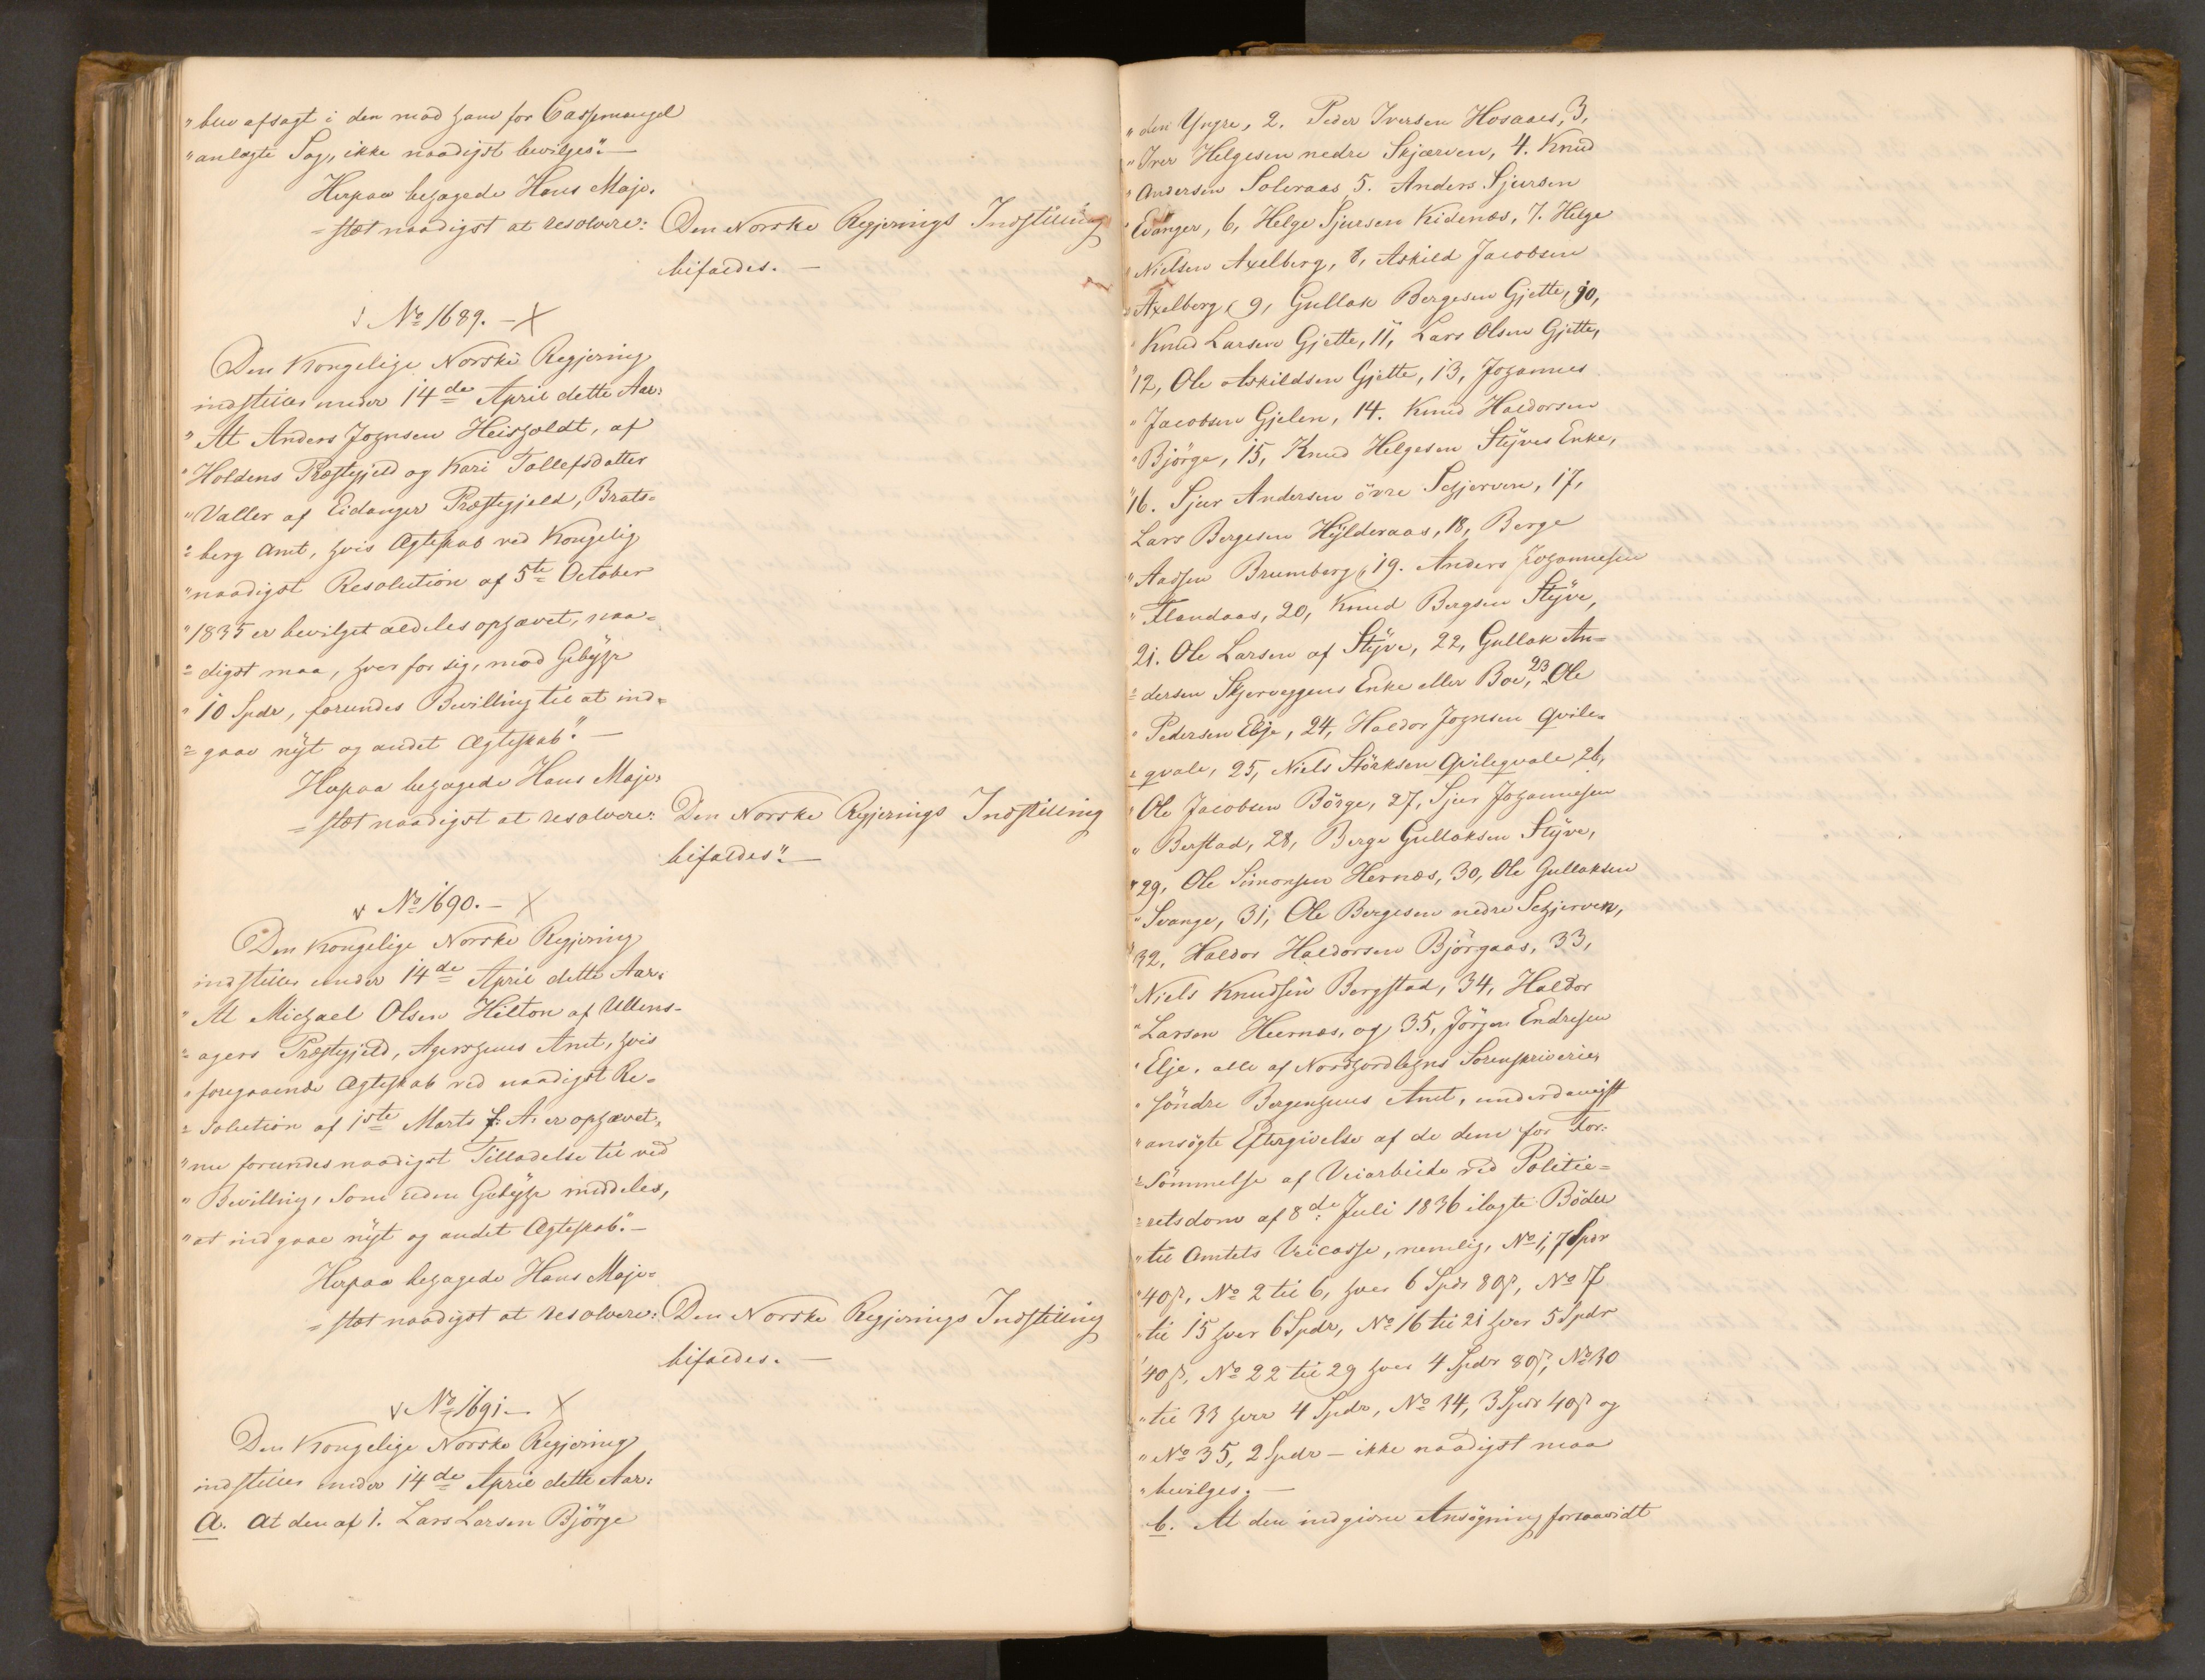 "blev afsagt i den mod ham for Cassemangel
"anlagte Sag, ikke naadigst bevilges".—
Herpaa behagede Hans Maje-
=stæt naadigst at resolvere: Den Norske Regjerings Indstilling
bifaldes.—
No 1689. —X
Den Kongelige Norske Regjering
indstiller under 14de April dette Aar:
"At Anders Johnsen Heisholdt, af
"Holdens Præstegjeld og Kari Tollefsdatter
"Valler af Eidanger Præstegjeld, Brats=
=berg Amt, hvis Ægteskab ved Kongelig
"naadigst Resolution af 5te October
"1835 er bevilget aldeles ophævet, naa=
=digst maa, hver for sig, mod Gebyhr
"10 Spdr, forundes Bevilling til at ind=
=gaae nyt og andet Ægteskab".—
Herpaa behagede Hans Maje=
=stæt naadigst at resolvere: Den Norske Regjerings Indstilling
bifaldes".—
No 1690.— X
Den Kongelige Norske Regjering
indstiller under 14de April dette Aar:
"At Michael Olsen Hilton af Ullens-
=agers Præstegjeld, Agershuus Amt, hvis
"foregaaende Ægteskab ved naadigst Re=
=solution af 1ste Marts f: A: er ophævet,
"nu forundes naadigst Tilladelse til ved
"Bevilling, som uden Gebyhr meddeles,
"at indgaae nyt og andet Ægteskab".—
Herpaa behagede Hans Maje=
=stæt naadigst at resolvere: Den Norske Regjerings Indstilling
bifaldes.—
No 1691.— X
Den Kongelige Norske Regjering
indstiller under 14de April dette Aar:
a. At den af 1. Lars Larsen Björge
"den Yngre, 2. Peder Iversen Hosaas, 3,
"Iver Helgesen nedre Skjærven, 4. Knud
"Andersen Soleraas 5. Anders Sjursen
"Evanger, 6, Helge Sjursen Kidenæs, 7. Helge
"Nielsen Axelberg, 8, Askild Jacobsen
"Axelberg, 9, Gullak Bergesen Gjette, 10,
"Knud Larsen Gjette, 11, Lars Olsen Gjette,
"12, Ole Askildsen Gjette, 13, Johannes
"Jacobsen Gjelen, 14. Knud Haldorsen
"Björge, 15, Knud Helgesen Styves Enke,
"16. Sjur Andersen övre Schjerven, 17,
Lars Bergesen Hylderaas, 18, Berge
"Aassen Brumberg, 19. Anders Johannesen
"Flandaas, 20, Knud Bergsen Styve,
21. Ole Larsen af Styve, 22, Gullak An=
=dersen Skjerveggens Enke eller Boe, 23. Ole
"Pedersen Elje, 24, Haldor Johnsen Qvile=
=qvale, 25, Niels Störksen Qvileqvale, 26,
"Ole Jacobsen Börge, 27, Sjur Johannesen
"Berstad, 28, Berge Gullaksen Styve,
"29, Ole Simonsen Hernæs, 30, Ole Gullaksen
"Svange, 31, Ole Bergesen nedre Schjerven,
"32, Haldor Haldorsen Björgaas, 33,
"Niels Knudsen Bergstad, 34, Haldor
"Larsen Heernæs, og 35, Jörgen Endresen
"Elje, alle af Nordhordlehns Sorenskriverie,
"söndre Bergenhuus Amt, underdanigst
"ansögte Eftergivelse af de dem for For=
=sömmelse af Veiarbeide ved Politie=
=retsdom af 8de Juli 1836 ilagte Böder
"til Amtets Veicasse, nemlig, No 1, 7 Spdr
"40 ß, No 2 til 6, hver 6 Spdr 80 ß, No 7
"til 15 hver 6 Spdr, No 16 til 21 hver 5 Spdr
"40 ß, No 22 til 29 hver 4 Spdr 80 ß, No 30
"til 33 hver 4 Spdr, No 34, 3 Spdr 40 ß og
"No 35, 2 Spdr — ikke naadigst maa
"bevilges.—
b. At den indgivne Ansögning forsaavidt